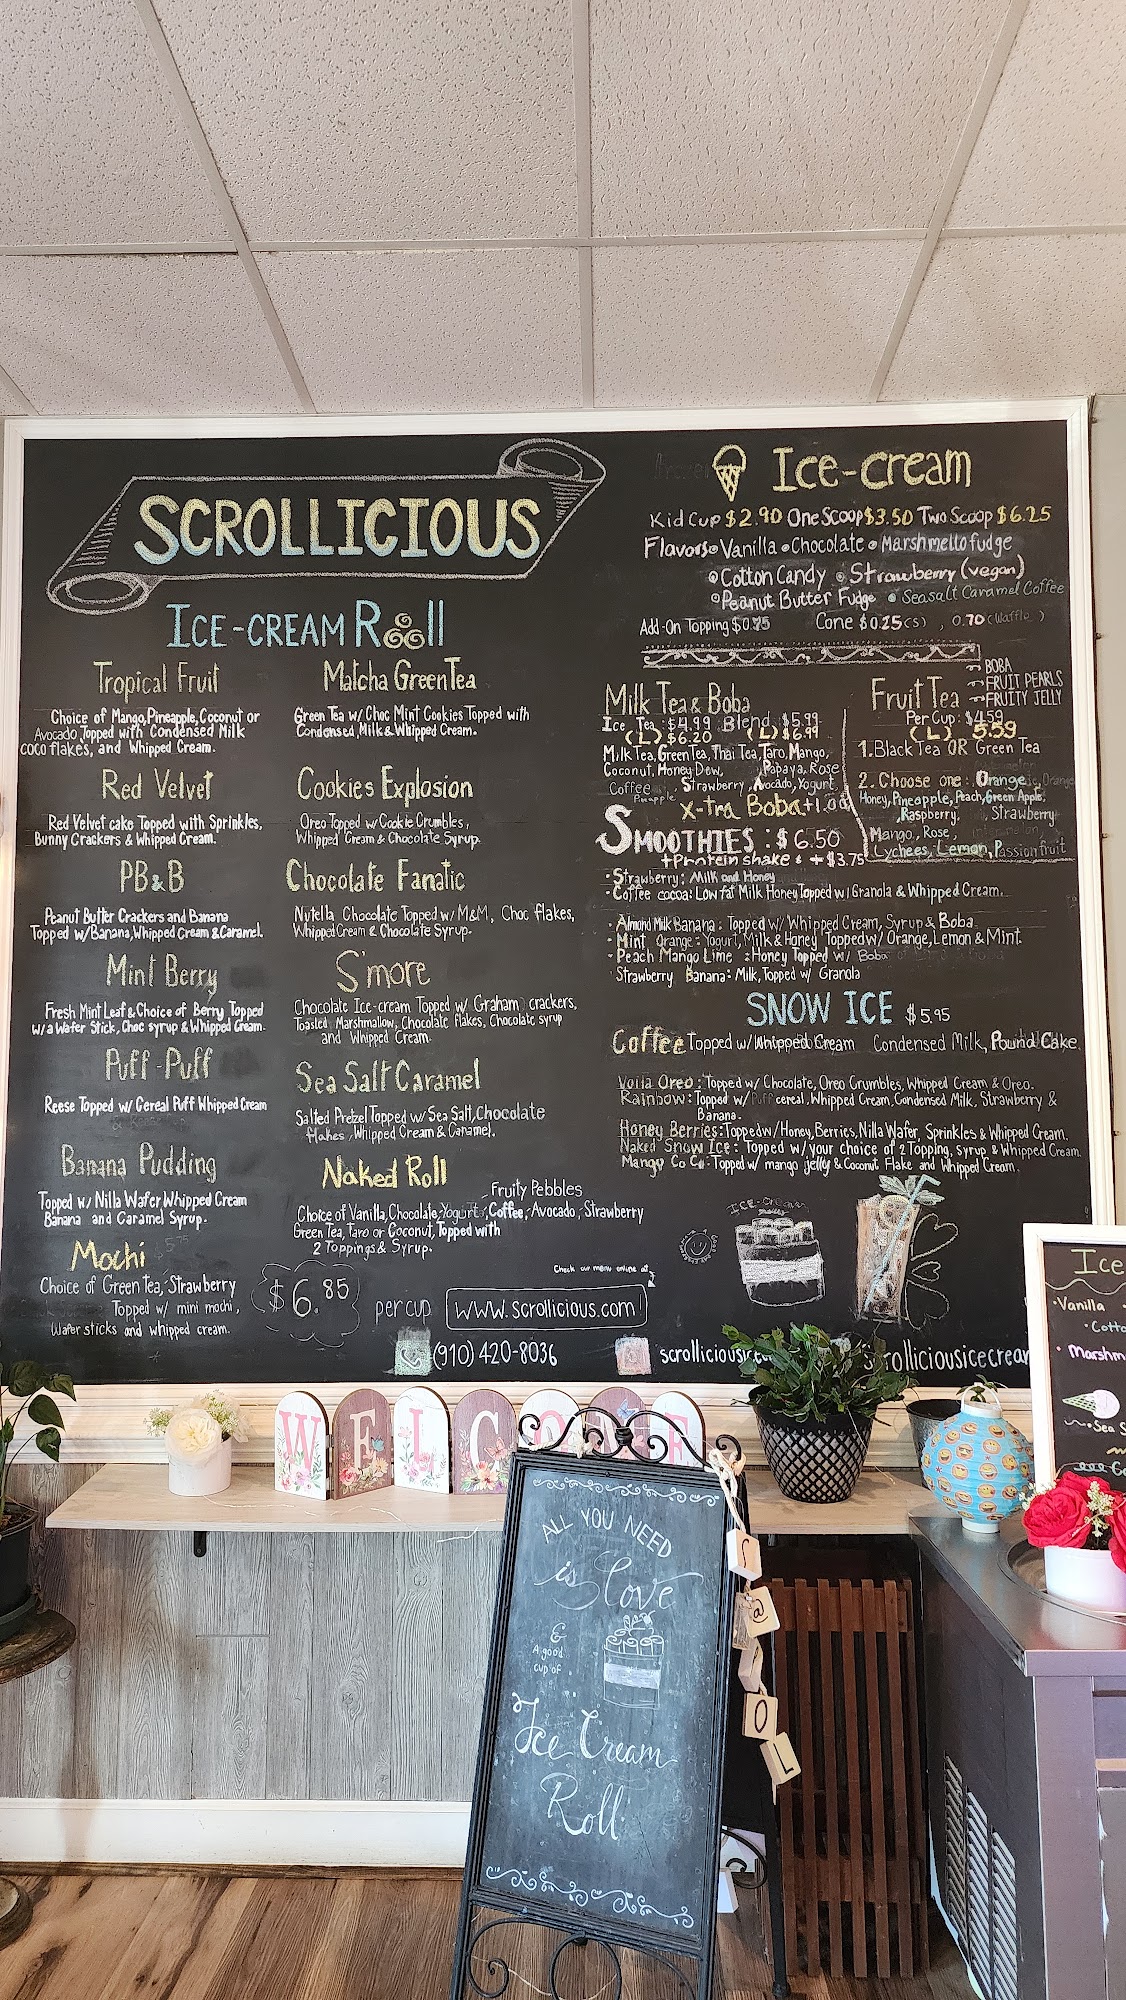 SCROLLICIOUS
ICE-CREAM Roll
Tropical Fruit
Choice of Mango, Pineapple, Coconut or
Avocado Topped with Condensed Milk
coco flakes, and Whipped Cream.
Red Velvet
Red Velvet cake Topped with Sprinkles,
Bunny Crackers & Whipped Cream.
PB&B
Peanut Butter Crackers and Banana
Topped w/Banana, Whipped Cream & Caramel.
Mint Berry
Fresh Mint Leaf & Choice of Berry Topped
w/a Wafer Stick, Choc syrup & Whipped Cream.
Puff-Puff
Reese Topped w/ Cereal Puff Whipped Cream
Banana Pudding
Topped w/ Nilla Wafer Whipped Cream
Banana and Caramel Syrup.
Mochi
Choice of Green tea, Strawberry
Topped w/ mini mochi,
Wafer sticks and whipped cream.
Matcha Green Tea
Green Tea w/ Choc Mint Cookies Topped with
Condensed, Milk & Whipped Cream.
Cookies Explosion
Oreo Topped w/ Cookie Crumbles,
Whipped Cream & Chocolate Syrup.
Chocolate Fanatic
Nutella Chocolate Topped w/ M&M, Choc flakes,
Whipped Cream & Chocolate Syrup.
S'more
Chocolate Ice-cream Topped w/ Graham crackers,
Toasted Marshmallow, Chocolate flakes, Chocolate syrup
and Whipped Cream.
Sea Salt Caramel
Salted Pretzel Topped w/ Sea Salt, Chocolate
flakes, Whipped Cream & Caramel.
Naked Roll
Fruity Pebbles
Choice of Vanilla, Chocolate, Yogurt, Coffee, Avocado, Strawberry
Green Tea, Taro or Coconut, Topped with
2 Toppings & Syrup.
$6.85 per cup
Check our menu online at
www.scrollicious.com
(910) 420-8036
scrollicious
scrolliciousicecream
Ice-cream
Kid Cup $2.90 One Scoop $3.50 Two Scoop $6.25
Flavors Vanilla Chocolate Marshmello fudge
Cotton Candy Strawberry (vegan)
Peanut Butter Fudge Seasalt Caramel Coffee
Add-On Topping $0.75 Cone $0.25(s), 0.70(Waffle)
Milk Tea & Boba
Ice Tea: $4.99 Blend $5.99
(L) $6.20 (L) $6.99
Milk Tea, Green Tea, Thai Tea, Taro, Mango,
Coconut, Honey Dew, Papaya, Rose
Coffee, Strawberry, Avocado, Yogurt
Pineapple
X-tra Boba +1.00
Fruit Tea
BOBA
FRUIT PEARLS
FRUITY JELLY
Per Cup: $4.59
(L) 5.59
1. Black Tea OR Green Tea
2. Choose one: Orange
Honey, Pineapple, Peach, Green Apple,
Raspberry, Strawberry
Mango, Rose,
Lychees, Lemon, Passion fruit
SMOOTHIES: $6.50
+Protein shake: +$3.75
• Strawberry: Milk and Honey
• Coffee cocoa: Low fat Milk Honey Topped w/ Granola & Whipped Cream.
• Almond Milk Banana: Topped w/ Whipped Cream, Syrup & Boba
• Mint Orange: Yogurt, Milk & Honey Topped w/ Orange, Lemon & Mint.
• Peach Mango Lime: Honey Topped w/ Boba
Strawberry Banana: Milk, Topped w/ Granola
SNOW ICE $5.95
Coffee Topped w/ Whipped Cream Condensed Milk, Pound Cake.
Voila Oreo: Topped w/ Chocolate, Oreo Crumbles, Whipped Cream & Oreo.
Rainbow: Topped w/ Puff cereal, Whipped Cream, Condensed Milk, Strawberry &
Banana.
Honey Berries: Topped w/ Honey, Berries, Nilla Wafer, Sprinkles & Whipped Cream.
Naked Snow Ice: Topped w/ your choice of 2 Topping, syrup & Whipped Cream.
Mango Co Co: Topped w/ mango jelly & Coconut Flake and Whipped Cream.
ICE-Cream
Ice
•Vanilla
•Cotto
•Marshm
Sea S
WELCOME
ALL YOU NEED
is Love
&
A good
cup of
Ice Cream
Roll
@
O
L